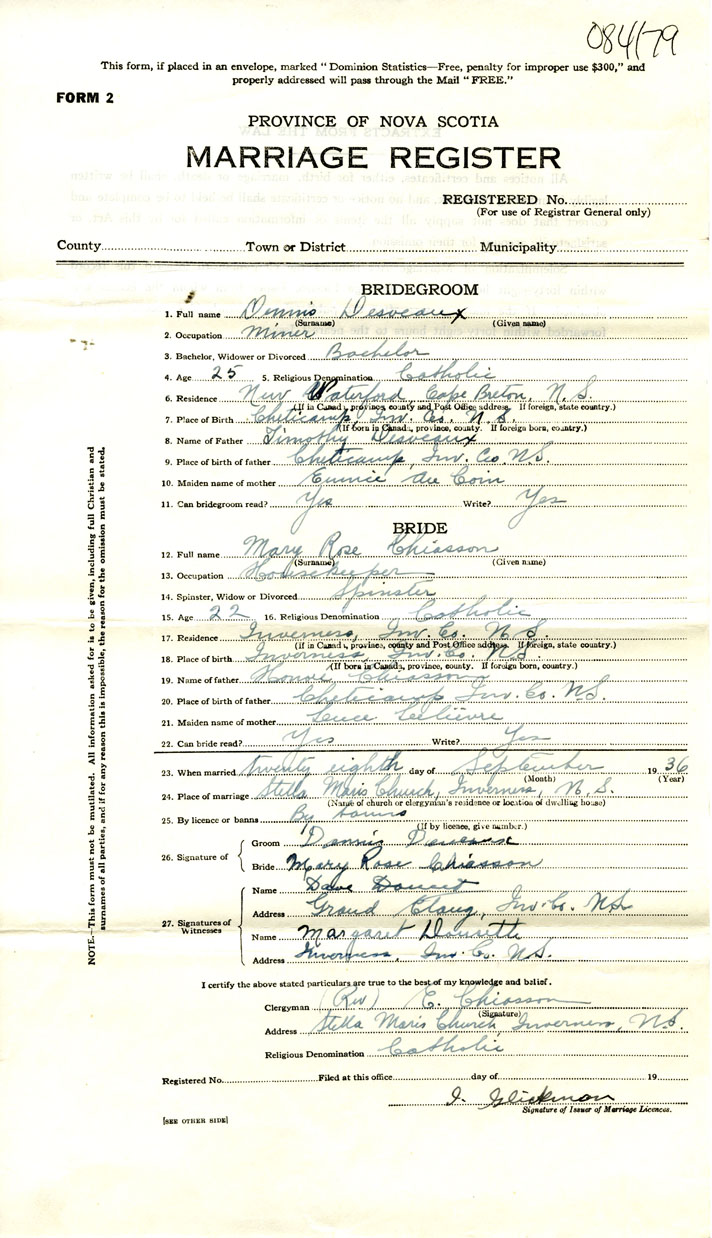 084179
This form, if placed in an envelope, marked "Dominion Statistics—Free, penalty for improper use $300," and
properly addressed will pass through the Mail "FREE."
FORM 2
PROVINCE OF NOVA SCOTIA
MARRIAGE REGISTER
REGISTERED No.
(For use of Registrar General only)
County Town or District Municipality
BRIDEGROOM
1. Full name Dennis Desveaux
(Surname) (Given name)
2. Occupation Miner
3. Bachelor, Widower or Divorced Bachelor
4. Age 25 5. Religious Denomination Catholic
6. Residence New Waterford, Cape Breton, N.S.
(If in Canada, province, county and Post Office address. If foreign, state country.)
7. Place of Birth Cheticamp, Inv. Co. N.S.
(If born in Canada, province, county. If foreign born, country.)
8. Name of Father Timothy Desveaux
9. Place of birth of father Cheticamp, Inv. Co. N.S.
10. Maiden name of mother Eunice Au Coin
11. Can bridegroom read? Yes Write? Yes
BRIDE
12. Full name Mary Rose Chiasson
(Surname) (Given name)
13. Occupation Housekeeper
14. Spinster, Widow or Divorced Spinster
15. Age 22 16. Religious Denomination Catholic
17. Residence Inverness, Inv. Co. N.S.
(If in Canada, province, county and Post Office address. If foreign, state country.)
18. Place of birth Inverness, Inv. Co. N.S.
(If born in Canada, province, county. If foreign born, country.)
19. Name of father Chiasson
20. Place of birth of father Cheticamp Inv. Co. N.S.
21. Maiden name of mother Luce Lelievre
22. Can bride read? Yes Write? Yes
23. When married twenty eighth day of September 1936
(Month) (Year)
24. Place of marriage Stella Maris Church, Inverness, N.S.
(Name of church or clergyman's residence or location of dwelling house)
25. By licence or banns By banns
(If by licence, give number.)
26. Signature of
Groom Dennis
Bride Mary Rose Chiasson
27. Signatures of Witnesses
Name Dave Doucet
Address Grand Etang, Inv. Co. N.S.
Name Margaret Doucette
Address Inverness, Inv. Co. N.S.
I certify the above stated particulars are true to the best of my knowledge and belief.
Clergyman (Rev) E. Chiasson
(Signature)
Address Stella Maris Church, Inverness, N.S.
Religious Denomination Catholic
Registered No. Filed at this office day of 19
I. Glickman
Signature of Issuer of Marriage Licences.
[SEE OTHER SIDE]
NOTE.—This form must not be mutilated. All information asked for is to be given, including full Christian and
surnames of all parties, and if for any reason this is impossible, the reason for the omission must be stated.